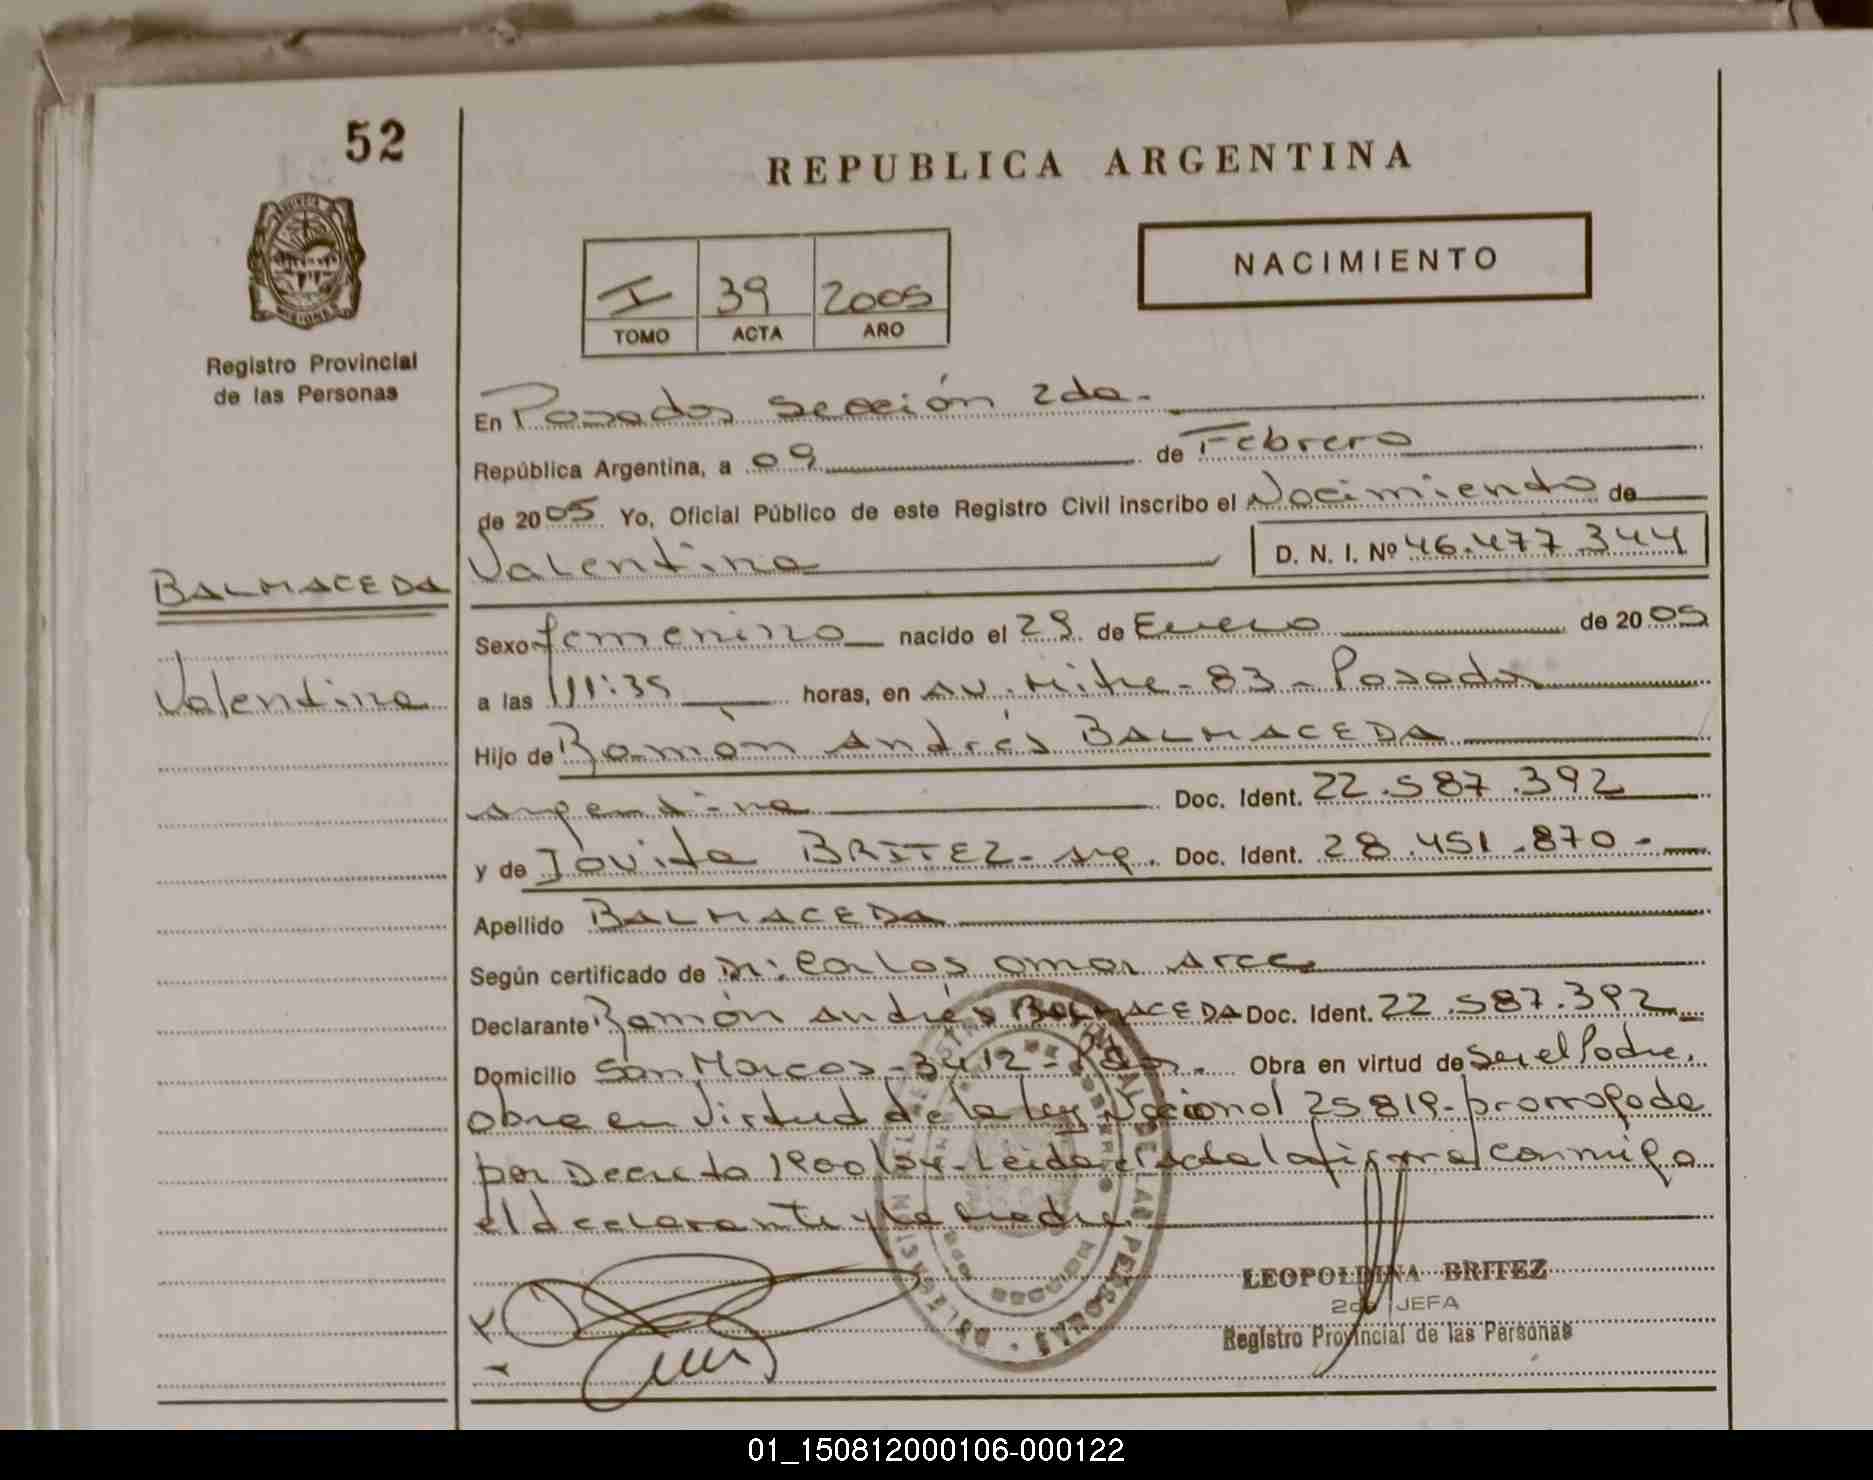 52
REPUBLICA ARGENTINA
NACIMIENTO
I 39 2005
TOMO ACTA AÑO
Registro Provincial
de las Personas
En Posadas Sección 2da.
República Argentina, a 09 de Febrero
de 2005 Yo, Oficial Público de este Registro Civil inscribo el Nacimiento de
Valentina D. N. I. Nº 46.477.344
BALMACEDA
Valentina
Sexo femenino nacido el 29 de Enero de 2005
a las 11:35 horas, en Av. Mitre - 83 - Posadas
Hijo de Ramón Andrés BALMACEDA
argentina Doc. Ident. 22.587.392
y de Jovita BRITEZ - arg. Doc. Ident. 28.451.870 -
Apellido BALMACEDA
Según certificado de Dr: Carlos Omar Arce
Declarante Ramón Andrés BALMACEDA Doc. Ident. 22.587.392
Domicilio San Marcos - 3412 - Pdas. Obra en virtud de Ser el Padre.
obra en virtud de la ley Nacional 25819 - prorrogada
por Decreto 1900/04 - Leida el acta la firma conmigo
el declarante y la madre.
LEOPOLDINA BRITEZ
2da JEFA
Registro Provincial de las Personas
01_150812000106-000122